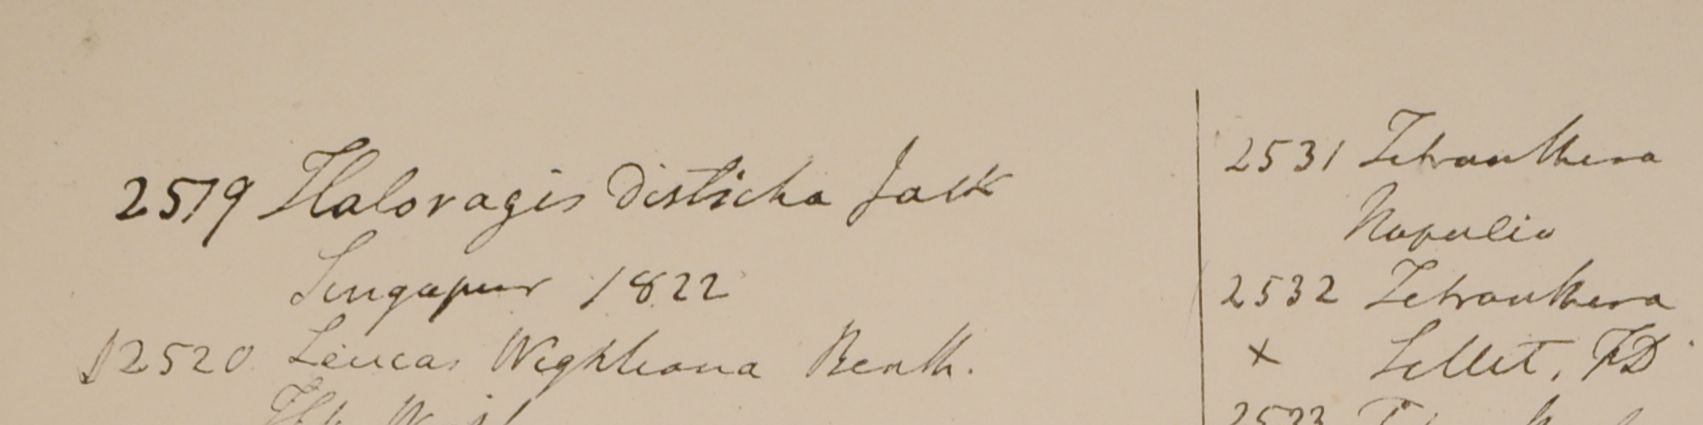 2519 Haloragis Disticha Jack
Singapur 1822
2520 Leucas Wightiana Benth.
2531 Tetranthera
Napalia
2532 Tetranthera
× Sillet, FD
2533